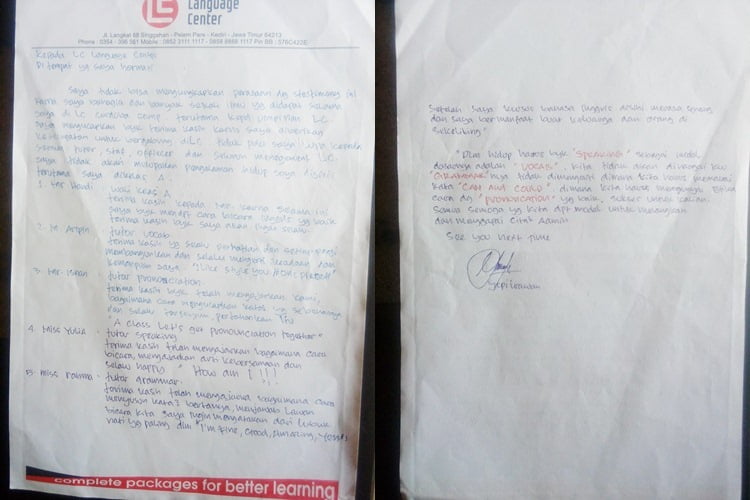 LS
Language
Center
Jl. Langkat 88 Singgahan - Pelem Pare - Kediri - Jawa Timur 64213
Kepada LC Language Center
Di tempat yg saya hormati
Saya tidak bisa mengungkapkan perasaan dg
karna saya bahagia dan banyak sekali ilmu yg didapat selama
saya di LC cordova camp, terutama kepd pimpinan LC
saya mengucapkan byk terima kasih karna saya diberikan
kesempatan untuk bergabung di LC. tidak pula saya kepada
semua tutor, staf officer dan seluruh LC
saya tidak akan melupakan pengalaman hidup saya disini
terutama saya dikelas A.
1. Wali kelas A
terima kasih kepada karna selama ini
saya byk mendpt cara bicara inggris yg baik
terima kasih byk saya akan ingat selalu
2. Mr. Aripin : tutor vocab
terima kasih yg selalu perhatian dan
membangunkan dan selalu mengerti keadaan dan
kemampuan saya. "I like style you Mr.
3. Mr. : tutor pronounciation.
terima kasih byk telah mengajarkan kami,
bagaimana cara mengucapkan kata2 yg sebenarnya
dan selalu tersenyum, pertahankan
"A class Let's get pronounciation together"
4. Miss Yulia : tutor speaking
terima kasih telah mengajarkan bagaimana cara
bicara, menjalankan arti kebersamaan dan
selalu happy " How am I !!!
5. Miss Rahma : tutor grammar.
terima kasih telah mengajarkan bagaimana cara
menyusun kata2 bertanya, menjawab lawan
bicara kita saya ingin mengatakan dari lubuk
hati yg paling dlm "I'm fine, Good, Amazing,
complete packages for better learning
Setelah saya kursus bahasa inggris disini merasa senang
dan saya bermanfaat buat keluarga dan orang di
sekeliling"
"Dlm hidup harus byk "SPEAKING" sebagai modal
dasarnya adalah "VOCAB", kita tidak akan
"GRAMMAR" nya tidak dimengerti dimana kita harus memakai
kata "CAN AND COULD", dimana kita harus mengucapkan
cara dg "PRONOUNCIATION" yg baik, sukses untuk kalian.
Semua semoga yg kita dpt modal untuk menangkan
dan menggapai Cita2 Aamiin
See you Next time